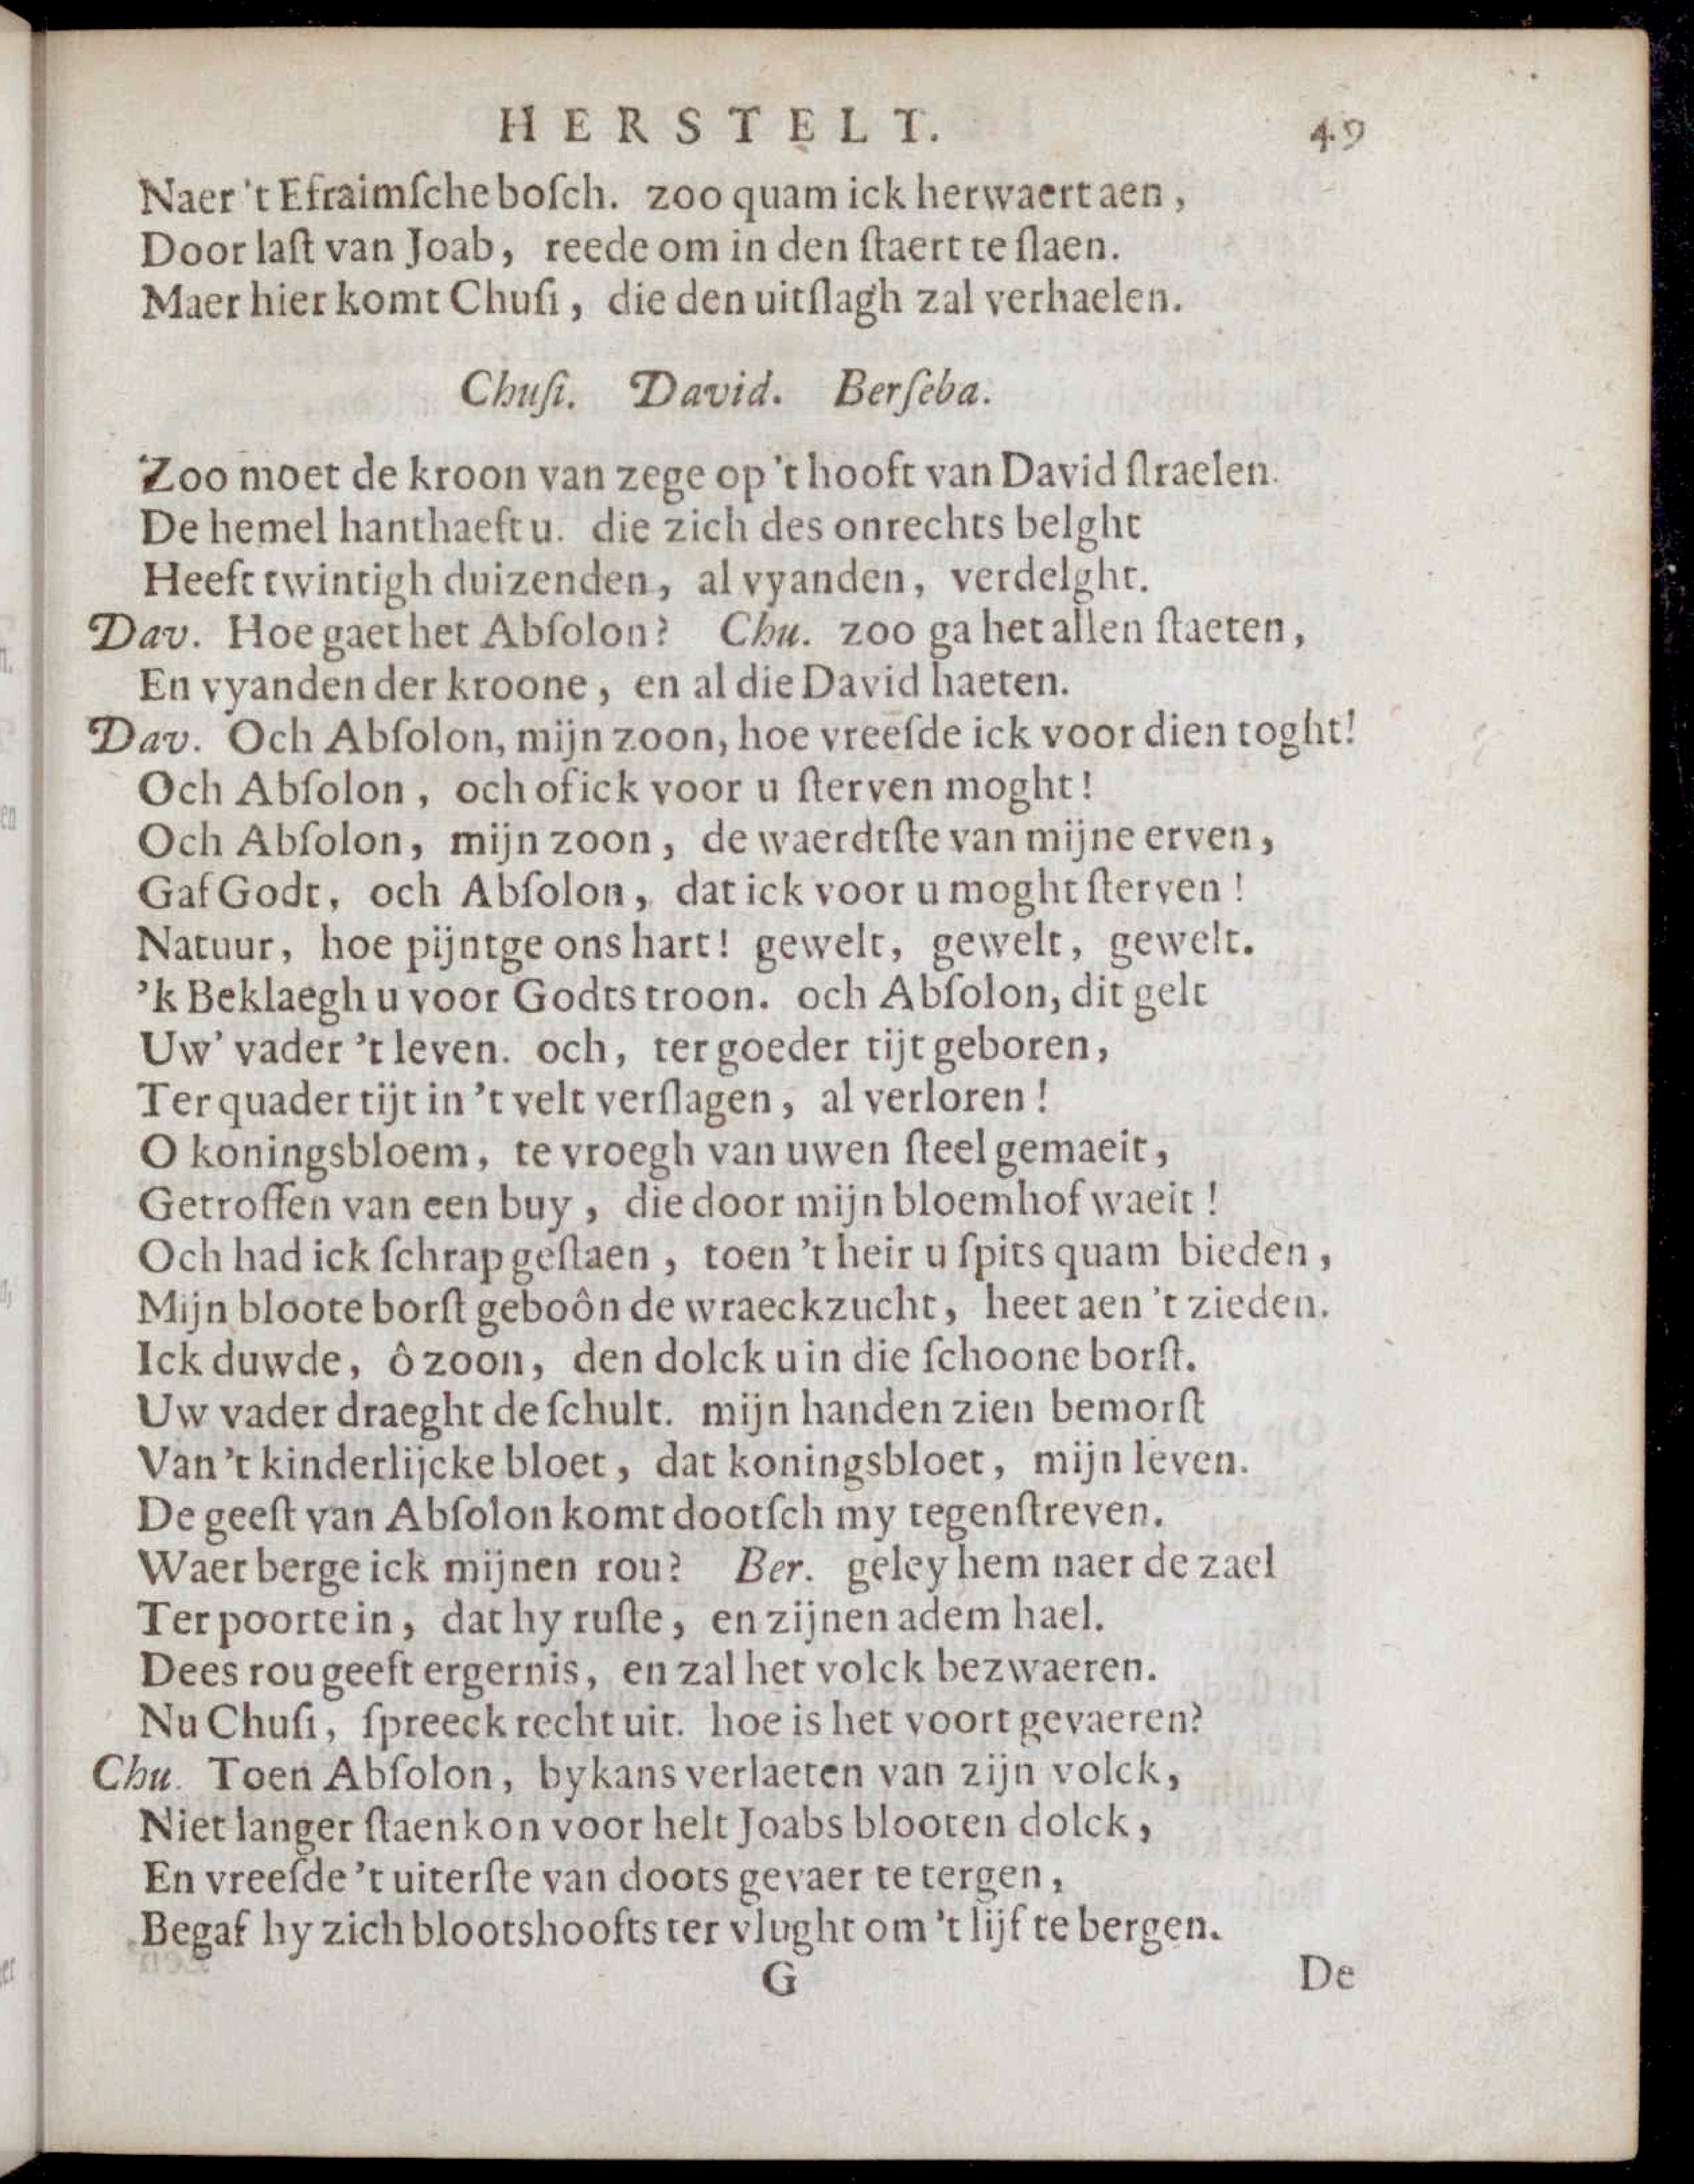 HERSTELT. 49
Naer 't Efraimſche boſch. zoo quam ick herwaert aen,
Door laſt van Joab, reede om in den ſtaert te ſlaen.
Maer hier komt Chuſi, die den uitſlagh zal verhaelen.
Chuſi. David. Berſeba.
Zoo moet de kroon van zege op 't hooft van David ſtraelen.
De hemel hanthaeft u. die zich des onrechts belght
Heeft twintigh duizenden, al vyanden, verdelght.
Dav. Hoe gaet het Abſolon? Chu. zoo ga het allen ſtaeten,
En vyanden der kroone, en al die David haeten.
Dav. Och Abſolon, mijn zoon, hoe vreeſde ick voor dien toght!
Och Abſolon, och of ick voor u ſterven moght!
Och Abſolon, mijn zoon, de waerdtſte van mijne erven,
Gaf Godt, och Abſolon, dat ick voor u moght ſterven!
Natuur, hoe pijntge ons hart! gewelt, gewelt, gewelt.
'k Beklaegh u voor Godts troon. och Abſolon, dit gelt
Uw' vader 't leven. och, ter goeder tijt geboren,
Ter quader tijt in 't velt verſlagen, al verloren!
O koningsbloem, te vroegh van uwen ſteel gemaeit,
Getroffen van een buy, die door mijn bloemhof waeit!
Och had ick ſchrap geſtaen, toen 't heir u ſpits quam bieden,
Mijn bloote borſt geboôn de wraeckzucht, heet aen 't zieden.
Ick duwde, ô zoon, den dolck u in die ſchoone borſt.
Uw vader draeght de ſchult. mijn handen zien bemorſt
Van 't kinderlijcke bloet, dat koningsbloet, mijn leven.
De geeſt van Abſolon komt dootſch my tegenſtreven.
Waer berge ick mijnen rou? Ber. geley hem naer de zael
Ter poorte in, dat hy ruſte, en zijnen adem hael.
Dees rou geeft ergernis, en zal het volck bezwaeren.
Nu Chuſi, ſpreeck recht uit. hoe is het voort gevaeren?
Chu. Toen Abſolon, bykans verlaeten van zijn volck,
Niet langer ſtaen kon voor helt Joabs blooten dolck,
En vreeſde 't uiterſte van doots gevaer te tergen,
Begaf hy zich blootshoofts ter vlught om 't lijf te bergen.
G De